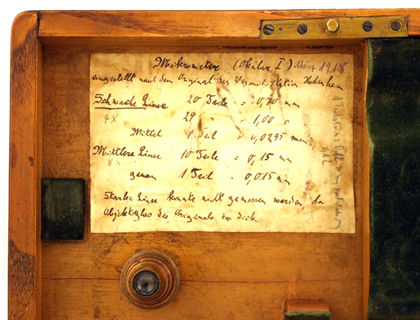 Mikrometer (Okular I) März 1918
eingestellt nach dem Original der Hohenheim
Schwache Linse 20 Teile = 0,70 mm
4X 29 " = 1,00 "
Mittel 1 Teil = 0,0295 mm
Mittlere Linse 10 Teile = 0,15 mm
genau 1 Teil = 0,015 mm
Starke Linse konnte nicht gemessen werden, da
Objektglas des Originals zu dick.